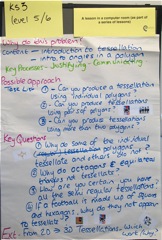 KS3
level 5/6
A lesson in a computer room (as part of a series of lessons)
Why do this problem?
content - introduction to tessellation
intro to angles in a polygon
Key Processes - Justifying - Communicating
Possible Approach
Task List:
① - Can you produce a tessellation
using individual polygons?
② - Can you produce tessellations
using pairs of polygons?
③ - Can you produce tessellations
using more than two polygons?
Key Questions
① Why do some of the individual
tessellate and others do not?
② Why do octagons & equilateral
triangles not tessellate?
③ How can you be certain you have
all the semi regular tessellations?
④ A football is made up of
and hexagons. Why do they not appear
to tessellate?
Ext:- From 2D → 3D Tessellations. Which
work? Why?